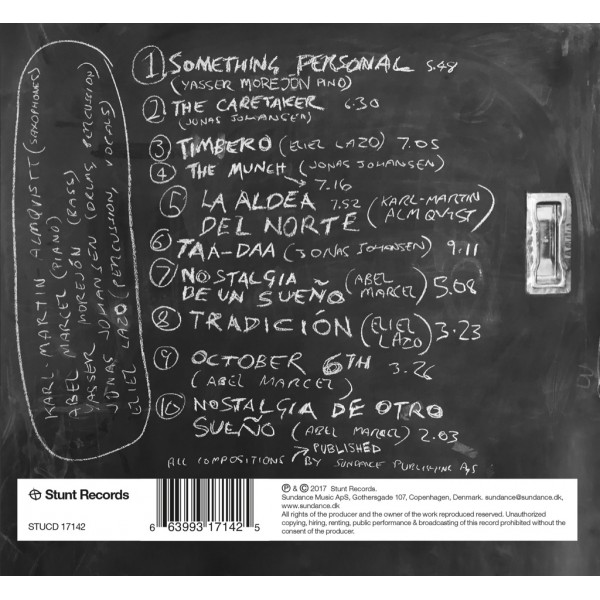 KARL-MARTIN ALMQVIST (SAXOPHONES)
ABEL MARCEL (PIANO)
YASSER MOREJÓN (BASS)
JONAS JOHANSEN (DRUMS, PERCUSSION)
ELIEL LAZO (PERCUSSION, VOCALS)
1. SOMETHING PERSONAL 5.48
(YASSER MOREJÓN PINO)
2. THE CARETAKER 6.30
(JONAS JOHANSEN)
3 TIMBERO (ELIEL LAZO) 7.05
4 THE MUNCH (JONAS JOHANSEN)
7.16
5 LA ALDEA DEL NORTE 7.52 (KARL-MARTIN ALMQVIST)
6 TAA-DAA (JONAS JOHANSEN) 9.11
7 NOSTALGIA DE UN SUEÑO (ABEL MARCEL) 5.08
8 TRADICIÓN (ELIEL LAZO) 3.23
9 OCTOBER 6TH 3.26
(ABEL MARCEL)
10 NOSTALGIA DE OTRO
SUEÑO (ABEL MARCEL) 2.03
ALL COMPOSITIONS PUBLISHED BY SUNDANCE PUBLISHING A/S
Stunt Records
STUCD 17142
6 63993 17142 5
℗ & © 2017 Stunt Records.
Sundance Music ApS, Gothersgade 107, Copenhagen, Denmark. sundance@sundance.dk,
www.sundance.dk
All rights of the producer and the owner of the work reproduced reserved. Unauthorized
copying, hiring, renting, public performance & broadcasting of this record prohibited without the
consent of the producer.